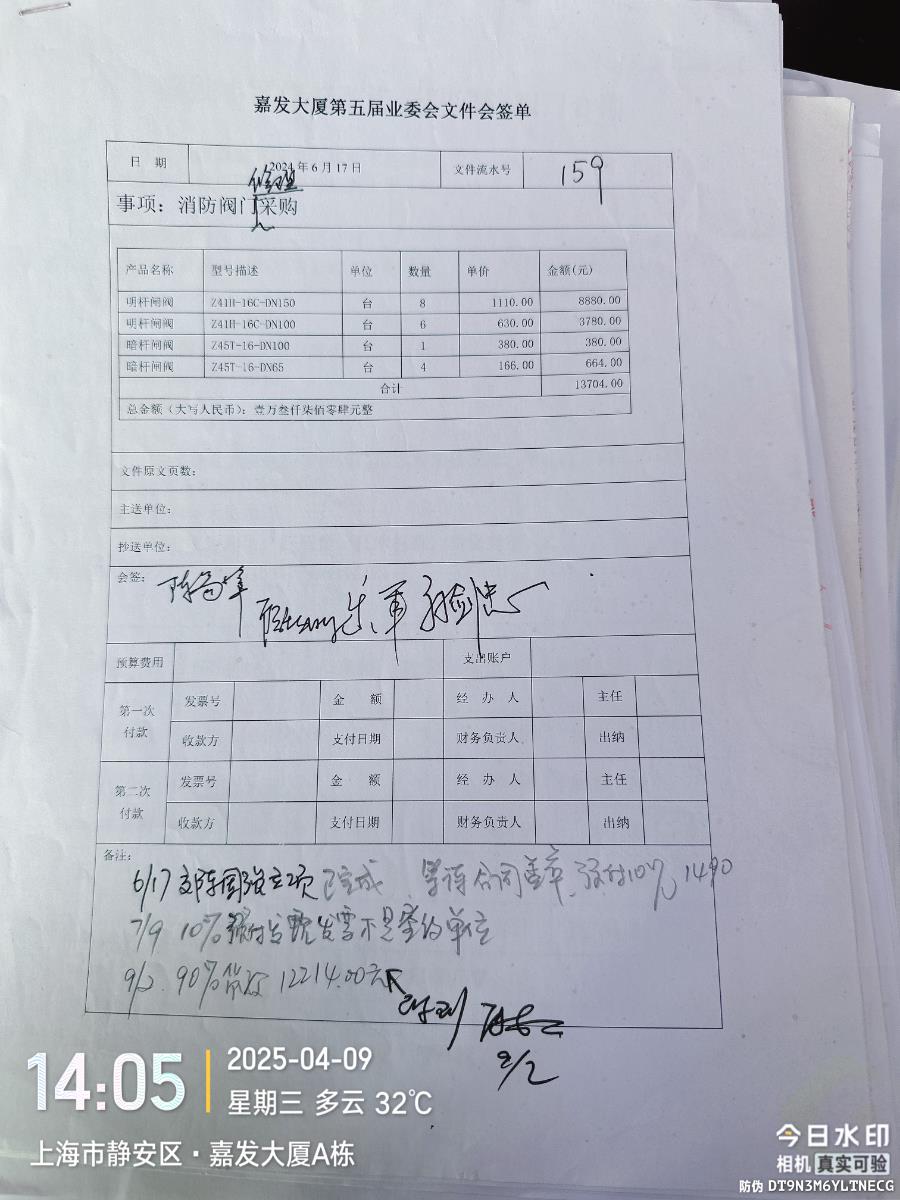 嘉发大厦第五届业委会文件会签单
日 期 2024年6月17日 文件流水号 159
修理
事项：消防阀门采购
产品名称 型号描述 单位 数量 单价 金额(元)
明杆闸阀 Z41H-16C-DN150 台 8 1110.00 8880.00
明杆闸阀 Z41H-16C-DN100 台 6 630.00 3780.00
暗杆闸阀 Z45T-16-DN100 台 1 380.00 380.00
暗杆闸阀 Z45T-16-DN65 台 4 166.00 664.00
合计 13704.00
总金额（大写人民币）：壹万叁仟柒佰零肆元整
文件原文页数：
主送单位：
抄送单位：
会签：
预算费用 支出账户
第一次付款 发票号 金 额 经 办 人 主任
收款方 支付日期 财务负责人 出纳
第二次付款 发票号 金 额 经 办 人 主任
收款方 支付日期 财务负责人 出纳
备注：
6/17 立项 已完成 等待合同盖章 预付10% 1490
7/9 10%预付 发票不是签约单位
9/2 90%货款 12214.00元
9/2
14:05 2025-04-09
星期三 多云 32℃
上海市静安区·嘉发大厦A栋
今日水印
相机 真实可验
防伪 DT9N3M6YLTNECG